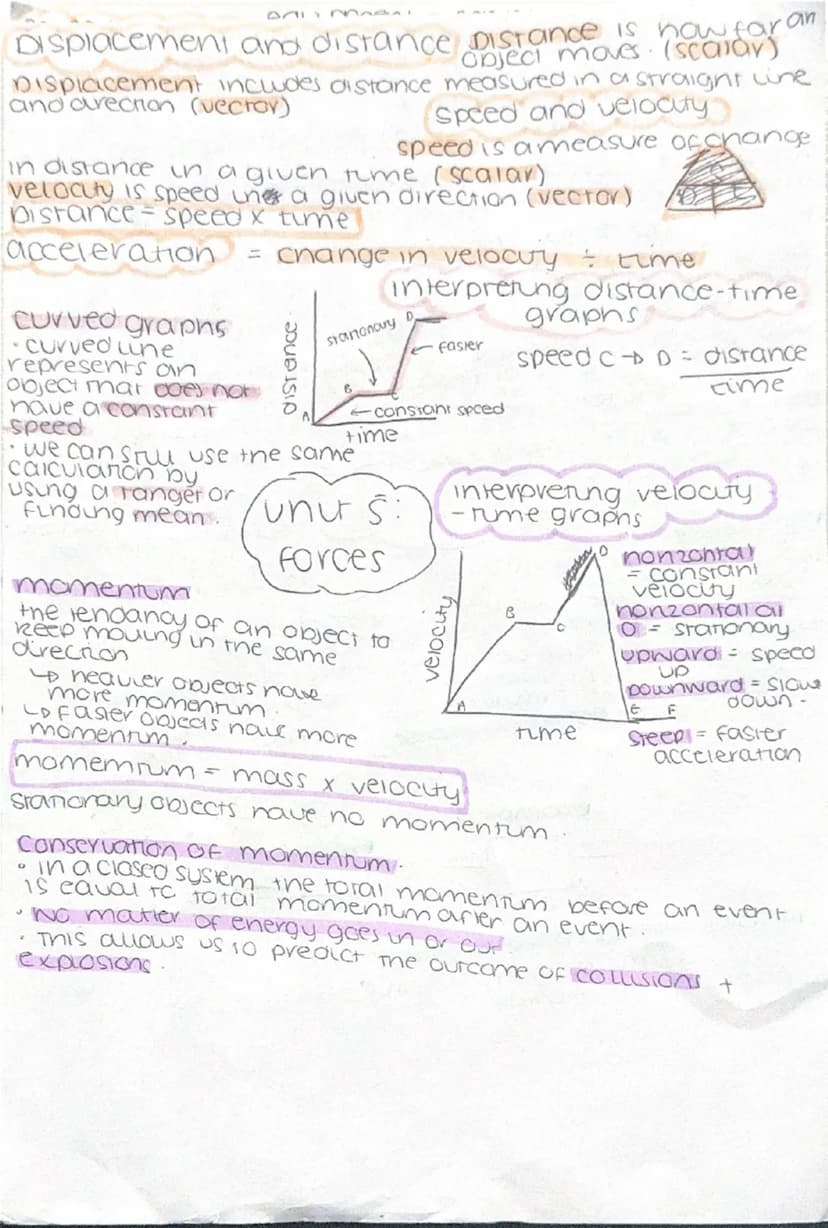 Displacement and distance
Distance is how far an
object moves. (scalar)
Displacement includes distance measured in a straight line
and direction (vector)
speed and velocity
speed is a measure of change
in distance in a given time (scalar)
velocity is speed in a given direction (vector)
Distance = speed x time
acceleration = change in velocity ÷ time
interpreting distance-time
graphs
curved graphs
· curved line
represents an
object that does not
have a constant
speed
· we can still use the same
calculation by
using a tanger or
finding mean.
Distance
stationary
D
faster
B
C
A
constant speed
time
speed C → D = distance
time
unit 5:
forces
interpreting velocity
-time graphs
velocity
A
B
C
D
E F
time
horizontal
= constant
velocity
horizontal at
0 = stationary
upward = speed
up
Downward = slow
down.
steep = faster
acceleration
momentum
the tendancy of an object to
keep moving in the same
direction
↳ heavier objects have
more momentum.
↳ faster objects have more
momentum.
momemtum = mass x velocity
stationary objects have no momentum.
conservation of momentum.
• in a closed system the total momentum before an event
is equal to total momentum after an event.
· No matter of energy goes in or out
· This allows us to predict the outcome of collisions +
explosions.